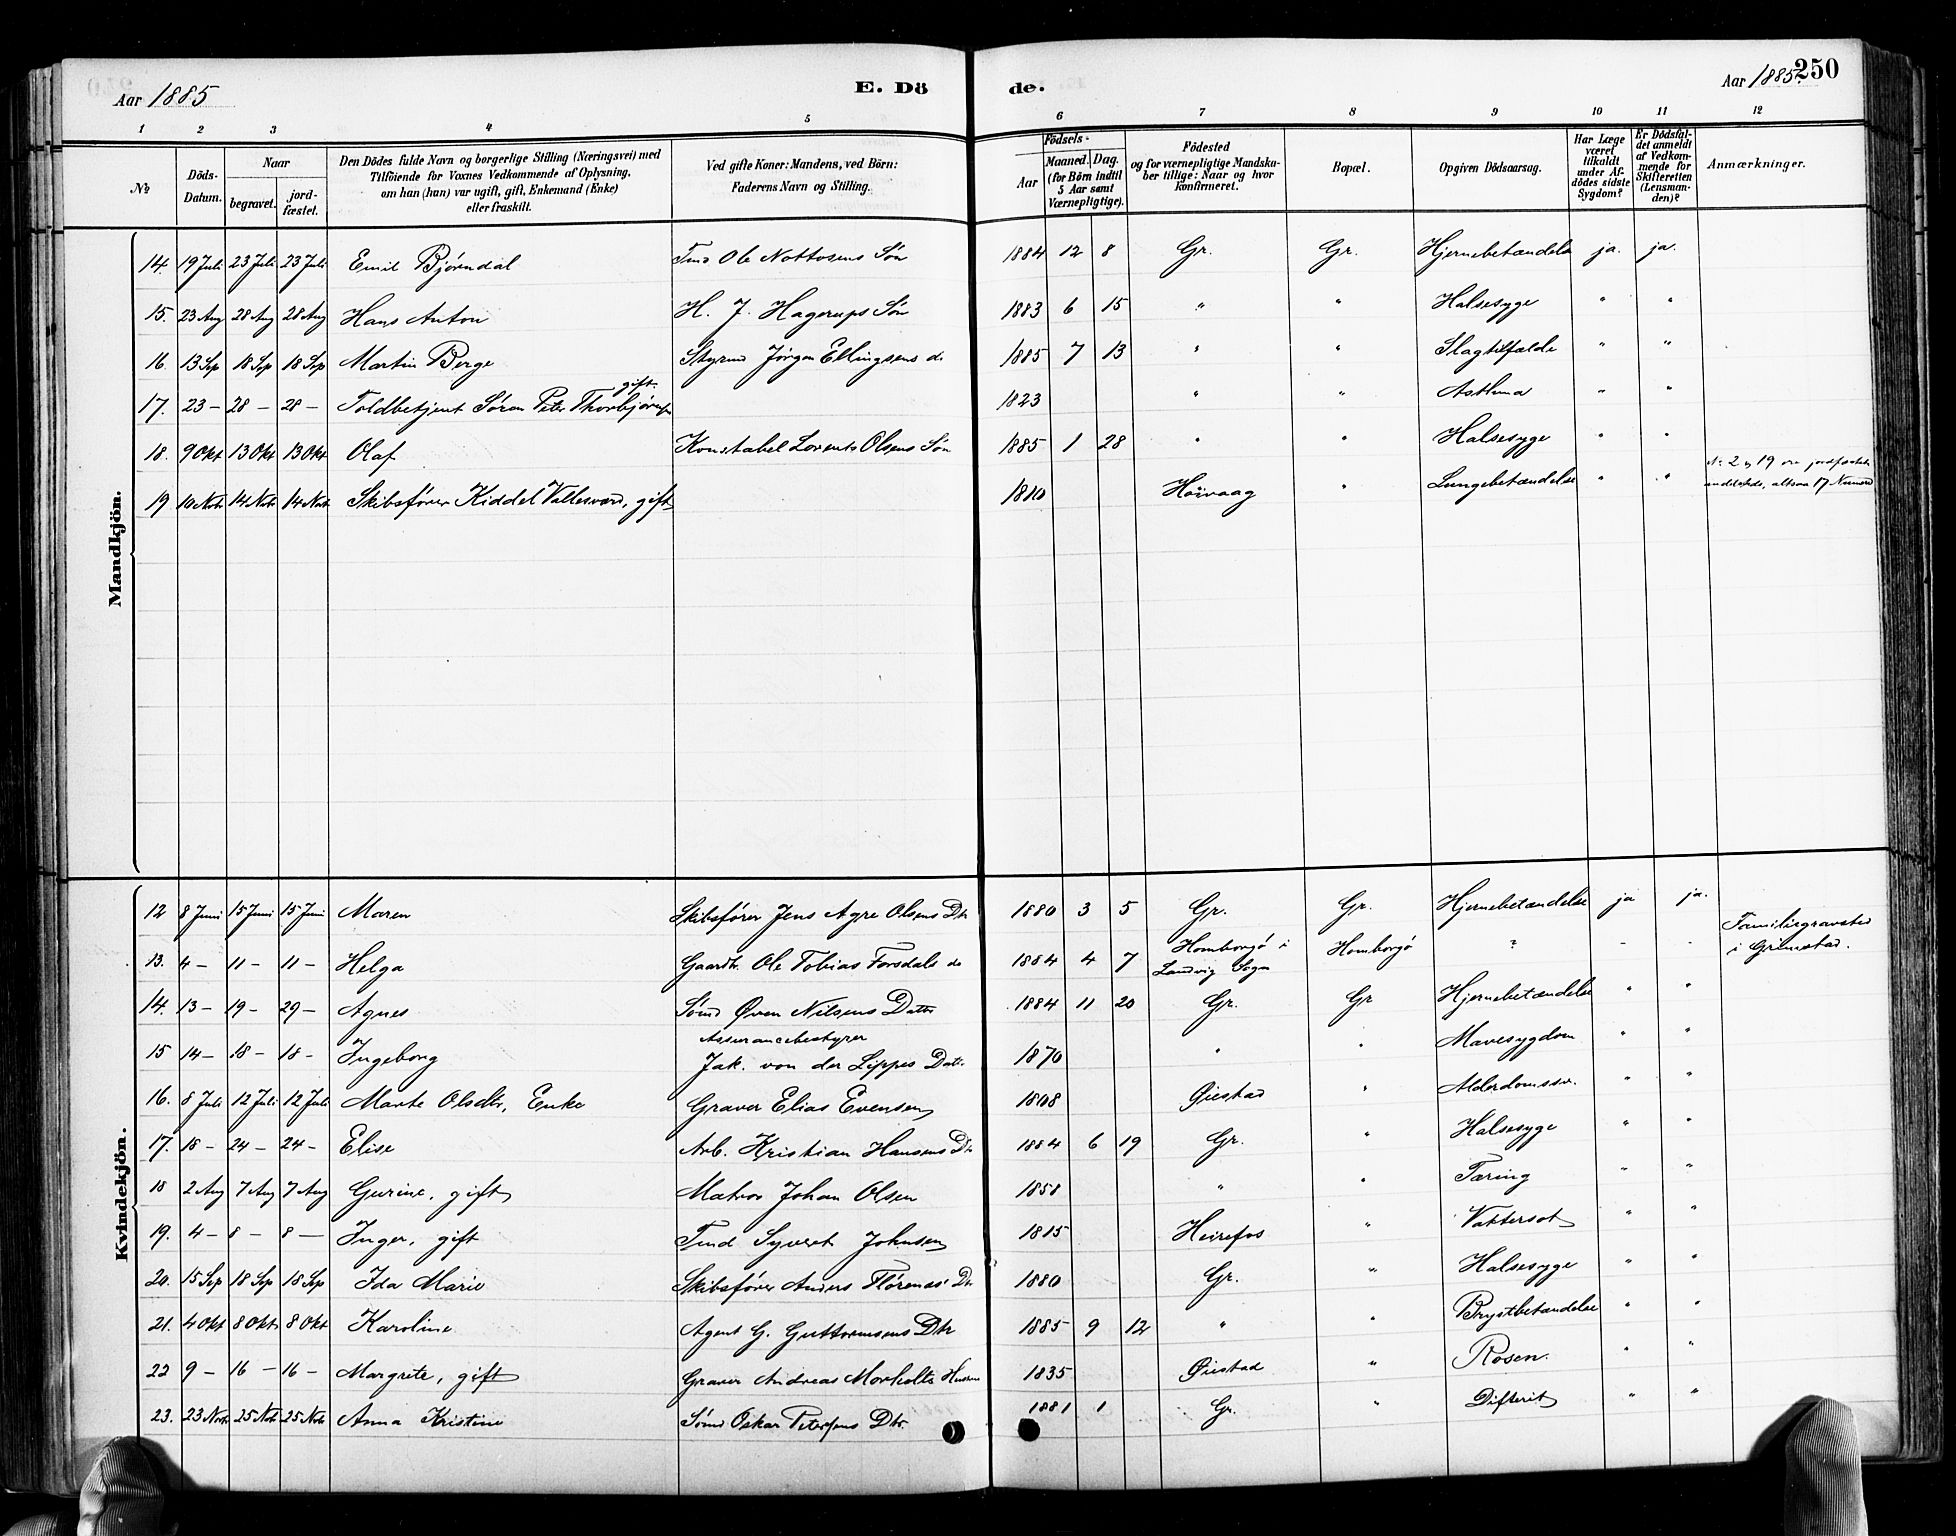 Aar 1885
E. Dö
de.
Aar 1885. 250
1 2 3 4 5 6 7 8 9 10 11 12
№
Döds-Datum.
Naar
begravet.
jord-fæstet.
Den Dödes fulde Navn og borgerlige Stilling (Næringsvei) med
Tilföiende for Voxnes Vedkommende af Oplysning,
om han (hun) var ugift, gift, Enkemand (Enke)
eller fraskilt.
Ved gifte Koner: Mandens, ved Börn:
Faderens Navn og Stilling.
Födsels-
Aar
Maaned. Dag.
(for Börn indtil
5 Aar samt
Værnepligtige).
Födested
og for værnepligtige Mandska-
ber tillige: Naar og hvor
konfirmeret.
Bopæl.
Opgiven Dödsaarsag.
Har Læge
været
tilkaldt
under Af-
dödes sidste
Sygdom?
Er Dödsfal-
det anmeldt
af Vedkom-
mende for
Skifteretten
(Lensman-
den)?
Anmærkninger.
Mandkjön.
14. 19 Juli 23 Juli 23 Juli Emil Bjørndal Tmd Ole Nottosens Søn 1884 12 8 Gr. Gr. Hjernebetændelse ja. ja.
15. 23 Aug 28 Aug 28 Aug Hans Anton H. J. Hagerups Søn 1883 6 15 " " Halsesyge " "
16. 13 Sep 18 Sep 18 Sep Martin Berge Styrmd Jørgen Ellingsens do 1885 7 13 " " Slagtilfælde " "
17. 23 – 28 – 28 – Toldbetjent Søren Peter Thorbjørnsen gift. 1823 " " Asthma " "
18. 9 Okt 13 Okt 13 Okt Olaf Konstabel Lorents Olsens Søn 1885 1 28 " " Halsesyge " "
19 10 Nov. 14 Nov. 14 Nov. Skibsfører Kiddel Vallesværd, gift 1810 Høivaag " Lungebetændelse " " № 2 og 19 ere jordfæstede
andetsteds, altsaa 17
Kvindekjön.
12 8 Juni 15 Juni 15 Juni Maren Skibsfører Jens Agre Olsens Dtr 1880 3 5 Gr. Gr. Hjernebetændelse ja ja.
13. 4 – 11 – 11 – Helga Gaardbr. Ole Tobias Forsdals do 1884 4 7 Homborgø i Landvig Sogn Homborgø ? - - Familiegravsted
i Grimstad.
14. 13 – 19 – 29 – Agnes Sømd Øven Nilsens Datter 1884 11 20 Gr. Gr Hjernebetændelse " "
15 14 – 18 – 18 – Ingeborg Assurancebestyrer
Jak. von der Lippes Datt. 1870 " " Mavesygdom " "
16. 8 Juli 12 Juli 12 Juli Marte Olsdtr, Enke Graver Elias Evensen 1808 Øiestad " Alderdomssv. " "
17. 18 – 24 – 24 – Elise Arb. Kristian Hansens Dtr 1884 6 19 Gr. " Halsesyge " "
18 2 Aug 7 Aug 7 Aug Gurine, gift Matros Johan Olsen 1858 " " Tæring " "
19. 4 – 8 – 8 – Inger, gift Tmd Syvert Johnsen 1815 Heirefos " Vattersot " "
20. 15 Sep 18 Sep 18 Sep Ida Marie Skibsfører Anders Flørenæs' Dtr 1880 Gr. " Halsesyge " "
21. 4 Okt 8 Okt 8 Okt Karoline Agent G. Guttormsens Dtr 1885 9 12 " " Brystbetændelse " "
22 9 – 16 – 16 – Margrete, gift Graver Andreas Morholts Hustru 1835 Øiestad " Rosen. " "
23. 23 Nov. 25 Nov 25 Nov. Anna Kristine Sømd Oskar Petersens Dtr. 1881 1 Gr. " Difterit " "